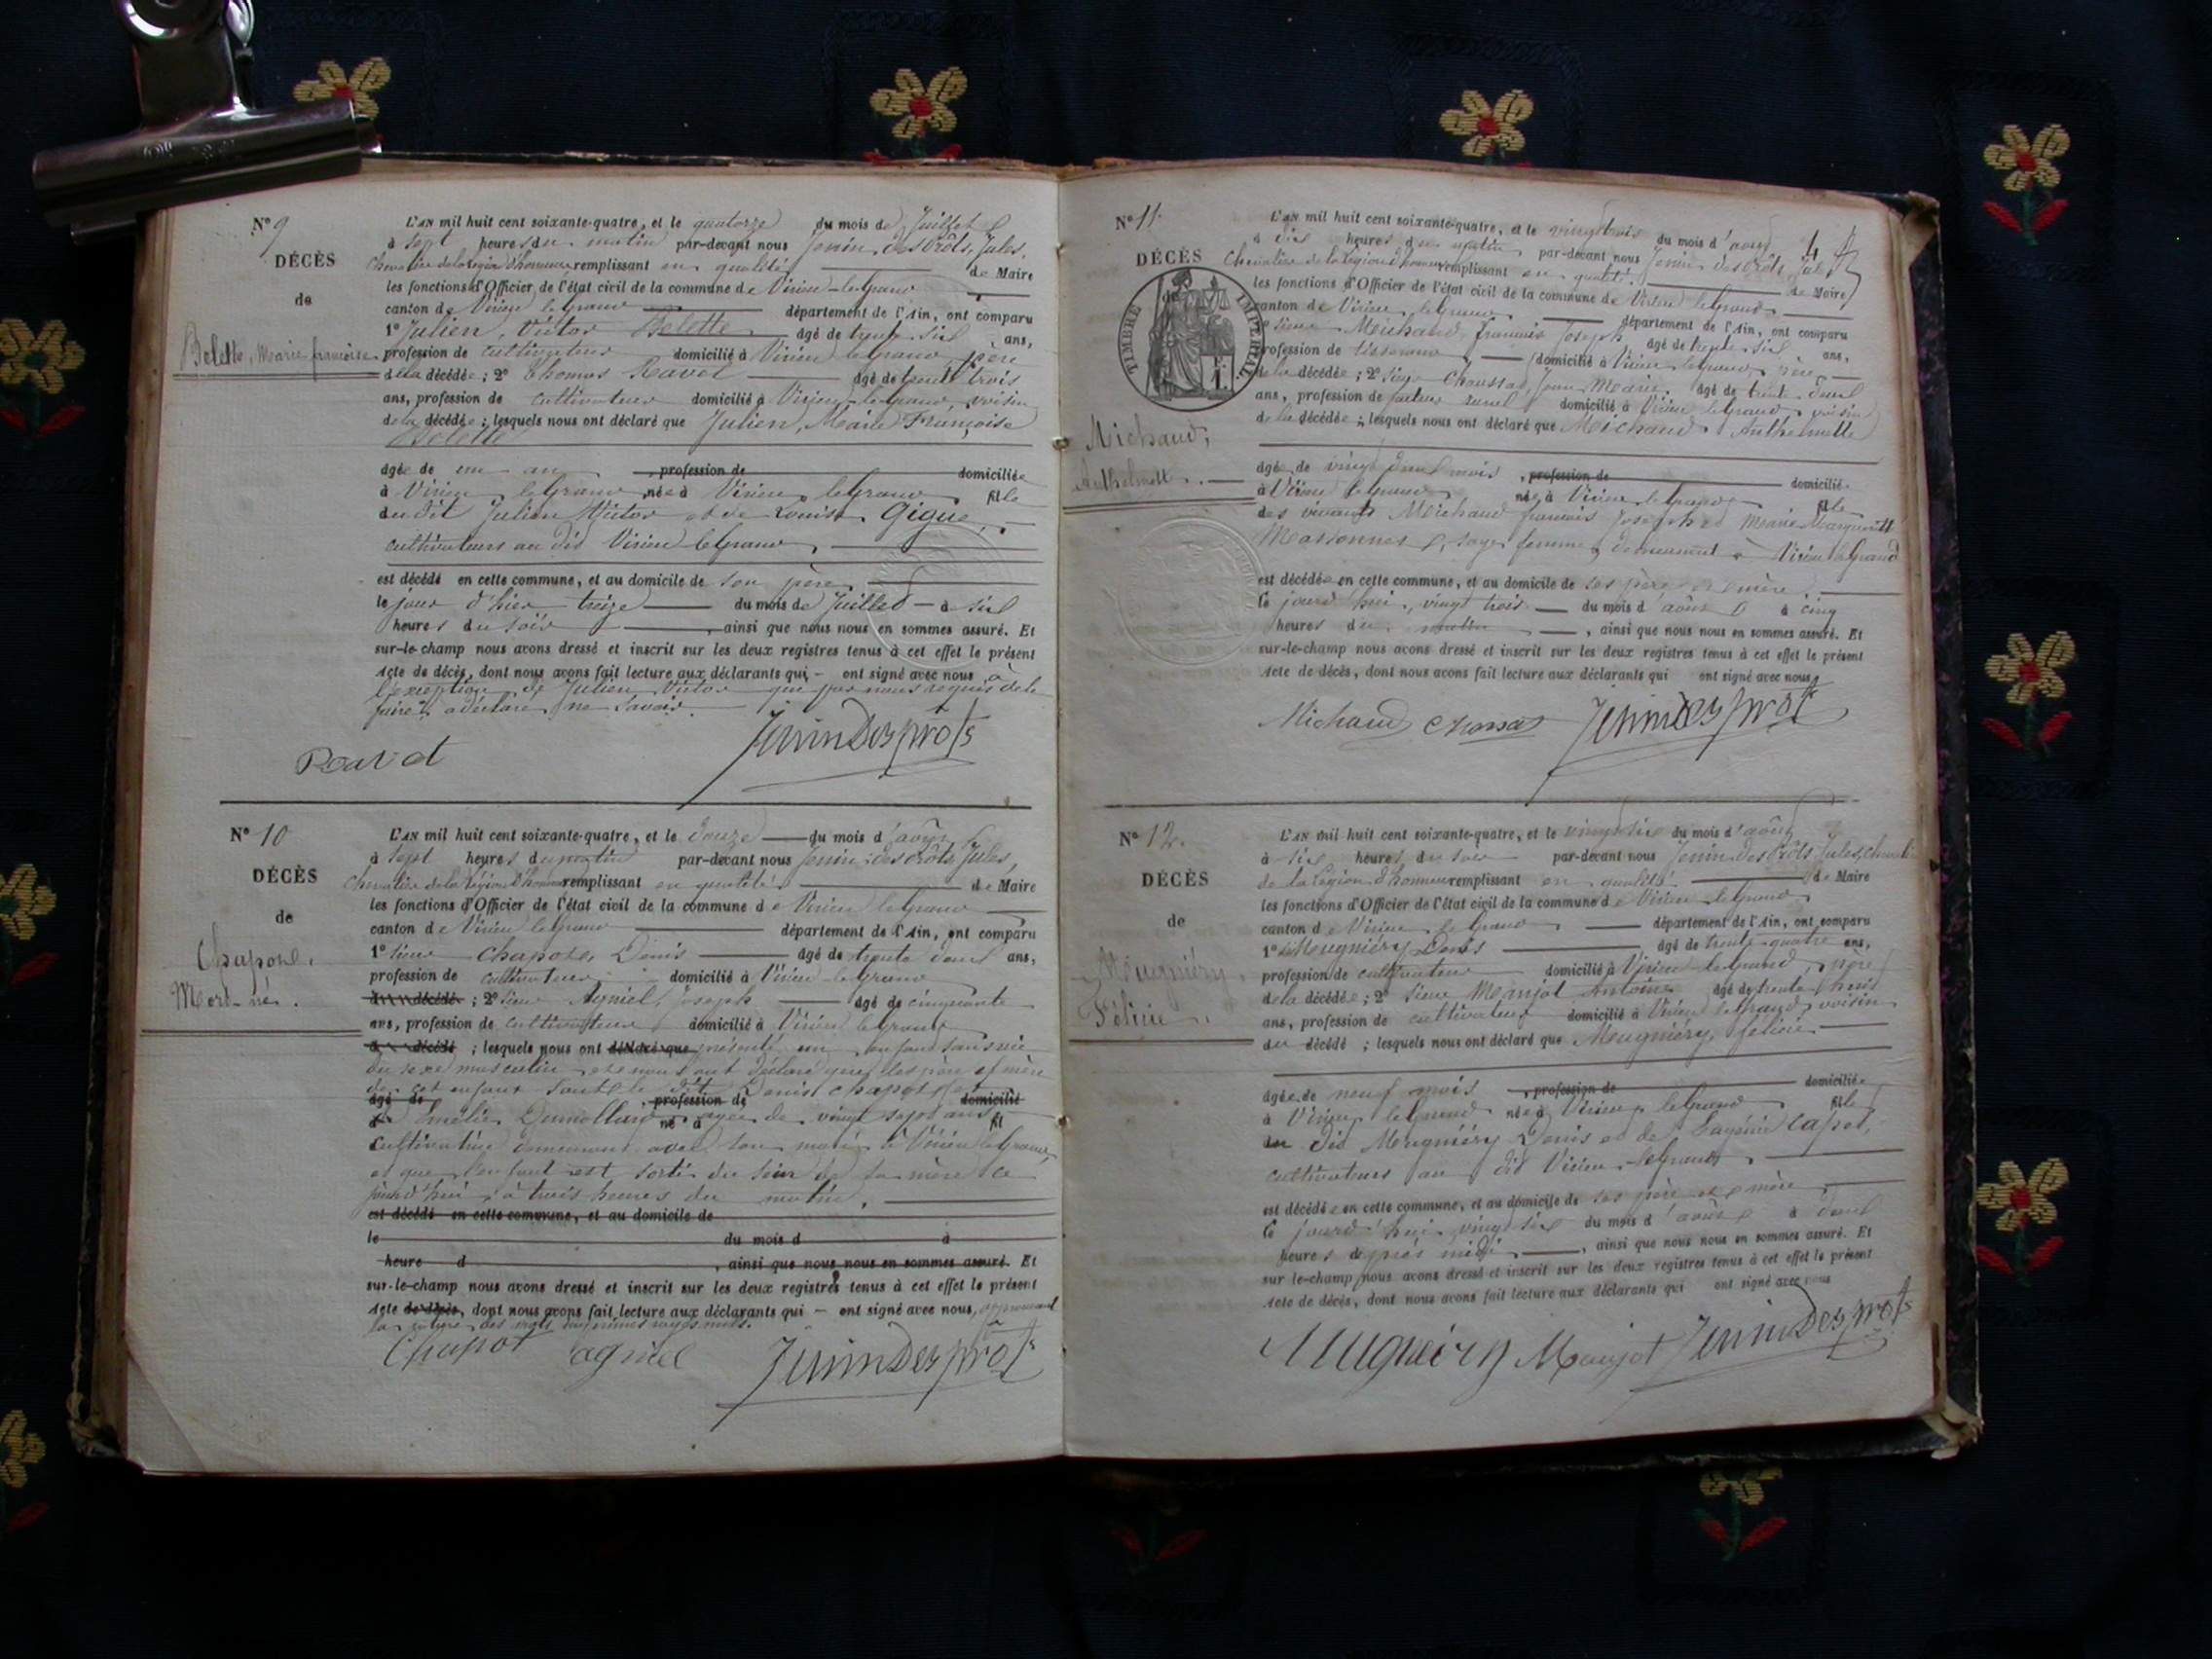 N° 9
DÉCÈS
de
Belette, Marie françoise
L'AN mil huit cent soixante-quatre, et le quatorze du mois de Juillet
à sept heures du matin par-devant nous Jenin des Prôts, Jules,
Chevalier de la Légion d'honneur remplissant en qualité de Maire
les fonctions d'Officier de l'état civil de la commune de Virieu-le-Grand
canton de Virieu le Grand département de l'Ain, ont comparu
1° Julien, Victor Belette âgé de trente six ans,
profession de cultivateur domicilié à Virieu le Grand, père
de la décédée ; 2° Thomas Ravet âgé de trente trois
ans, profession de cultivateur domicilié à Virieu-le-Grand, voisin
de la décédée ; lesquels nous ont déclaré que Julien, Marie Françoise
Belette
âgée de un an , profession de domiciliée
à Virieu le Grand née à Virieu le Grand fille
du dit Julien Victor et de Louise Gigue,
cultivateurs au dit Virieu le Grand
est décédé en cette commune, et au domicile de son père
le jour d'hier treize du mois de Juillet à six
heures du soir , ainsi que nous nous en sommes assuré. Et
sur-le-champ nous avons dressé et inscrit sur les deux registres tenus à cet effet le présent
Acte de décès, dont nous avons fait lecture aux déclarants qui ont signé avec nous à
l'exception de Julien Victor que par nous requis de le
faire a déclaré ne savoir.
Ravet Jenin Desprots
N° 10
DÉCÈS
de
Chapot,
Mort-né.
L'AN mil huit cent soixante-quatre, et le douze du mois d'août
à sept heures du matin par-devant nous Jenin des Prôts Jules,
Chevalier de la Légion d'honneur remplissant en qualité de Maire
les fonctions d'Officier de l'état civil de la commune de Virieu le Grand
canton de Virieu le Grand département de l'Ain, ont comparu
1° sieur Chapot, Denis âgé de trente deux ans,
profession de cultivateur domicilié à Virieu le Grand
décédé ; 2° sieur Agniel, Joseph âgé de cinquante
ans, profession de cultivateur domicilié à Virieu le Grand
décédé ; lesquels nous ont déclaré que présenté un enfant sans vie
du sexe masculin et nous ont déclaré que les père et mère
de cet enfant sont le dit Denis Chapot et
âgé de , profession de domicilié
Emélie Dumollard âgée de vingt sept ans
né à fil
cultivatrice demeurant avec son mari à Virieu le Grand,
et que l'enfant est sorti du sein de sa mère ce
jourd'hui à trois heures du matin.
est décédé en cette commune, et au domicile de
le du mois d à
heure d , ainsi que nous nous en sommes assuré. Et
sur-le-champ nous avons dressé et inscrit sur les deux registres tenus à cet effet le présent
Acte de décès, dont nous avons fait lecture aux déclarants qui ont signé avec nous, approuvant
la rature des mots imprimés rayés nuls.
Chapot agniel Jenin Desprots
N° 11.
DÉCÈS
de
TIMBRE IMPERIAL.
Michaud,
Anthelmette.
4
L'AN mil huit cent soixante-quatre, et le vingt trois du mois d'août
à dix heures du matin par-devant nous Jenin des Prôts, Jules
Chevalier de la Légion d'honneur remplissant en qualité de Maire
les fonctions d'Officier de l'état civil de la commune de Virieu le Grand
canton de Virieu le Grand département de l'Ain, ont comparu
1° sieur Michaud, françois Joseph âgé de trente six ans,
profession de tisserand domicilié à Virieu le Grand, père
de la décédée ; 2° sieur Chaussat, Jean Marie âgé de trente deux
ans, profession de facteur rural domicilié à Virieu le Grand, voisin
de la décédée ; lesquels nous ont déclaré que Michaud Anthelmette
âgée de vingt deux mois , profession de domiciliée
à Virieu le Grand née à Virieu le Grand fille
des vivants Michaud françois Joseph et Marie Marguerite
Massonnet, sage femme, demeurant à Virieu le Grand
est décédée en cette commune, et au domicile de ses père et mère
le jourd'hui, vingt trois du mois d'août à cinq
heures du matin , ainsi que nous nous en sommes assuré. Et
sur-le-champ nous avons dressé et inscrit sur les deux registres tenus à cet effet le présent
Acte de décès, dont nous avons fait lecture aux déclarants qui ont signé avec nous
Michaud Jenin Desprots
N° 12.
DÉCÈS
de
Meugniéry,
Félicie.
L'AN mil huit cent soixante-quatre, et le vingt six du mois d'août
à six heures du soir par-devant nous Jenin des Prôts Jules, chevalier
de la Légion d'honneur remplissant en qualité de Maire
les fonctions d'Officier de l'état civil de la commune de Virieu-le-Grand
canton de Virieu le Grand département de l'Ain, ont comparu
1° Meugniéry Denis âgé de trente quatre ans,
profession de cultivateur domicilié à Virieu-le-Grand, père
de la décédée ; 2° sieur Manjot Antoine âgé de trente huit
ans, profession de cultivateur domicilié à Virieu le Grand, voisin
du décédé ; lesquels nous ont déclaré que Meugniéry, félicie
âgée de neuf mois , profession de domiciliée
à Virieu le Grand née à Virieu le Grand fille
du dit Meugniéry Denis et de Eugénie Capet,
cultivateurs au dit Virieu-le-Grand
est décédée en cette commune, et au domicile de ses père et mère
le jourd'hui vingt six du mois d'août à deux
heures après midi , ainsi que nous nous en sommes assuré. Et
sur le-champ nous avons dressé et inscrit sur les deux registres tenus à cet effet le présent
Acte de décès, dont nous avons fait lecture aux déclarants qui ont signé avec nous
Meugniéry Manjot Jenin Desprots